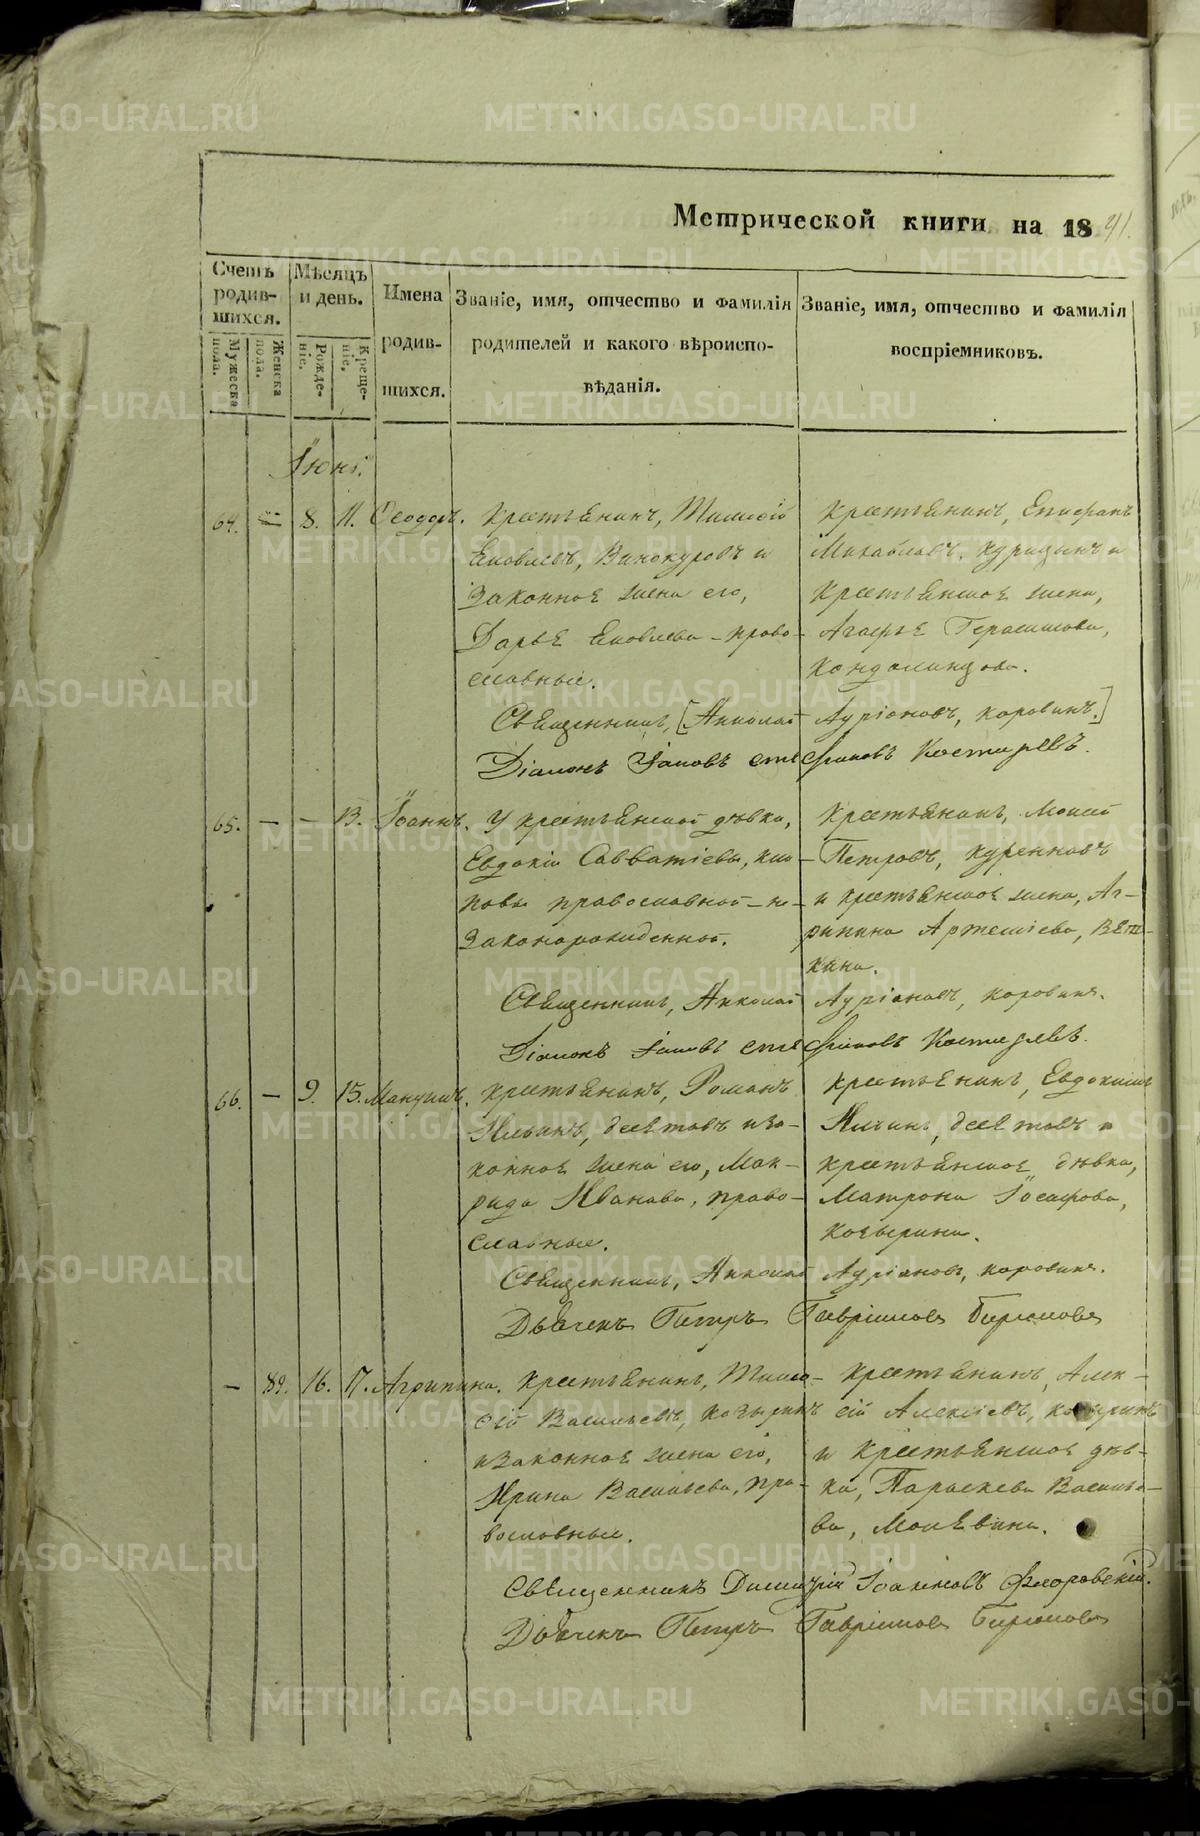 Метрической книги на 1841.
Счетъ родив-шихся.
Мужеска пола.
Женска пола.
Мѣсяцъ и день.
Рожде-ніе.
Креще-ніе.
Имена родив-шихся.
Званіе, имя, отчество и фамилія
родителей и какого вѣроиспо-
вѣданія.
Званіе, имя, отчество и фамилія
воспріемниковъ.
Іюнь.
64. — 8. 11. Ѳеодоръ. Крестьянинъ, Тимоѳей
Яковлевъ, Винокуровъ и
законное жена его,
Дарья Яковлева - право-
славные.
Крестьянинъ, Епифанъ
Михайловъ, Курицынъ и
крестьянское жена,
Агафье Герасимова,
Кондалинцова.
Священникъ, [Николай Адріановъ, Коровинъ.]
Діаконъ Іаковъ Стефановъ Костылевъ.
65. — — 13. Іоаннъ. У крестьянской дѣвки,
Евдокіи Савватіевы, Ки-
пова православной - не-
законорожденной.
Крестьянинъ, Моисей
Петровъ, Куренновъ
и крестьянское жена, Аг-
рипина Артемиева, Вят-
кина.
Священникъ, Николай Адріановъ, Коровинъ.
Діаконъ Іаковъ Стефановъ Костылевъ.
66. — 9. 15. Мануилъ. Крестьянинъ, Романъ
Ильинъ, Десятовъ и за-
конное жена его, Мак-
рида Иванова, право-
славные.
Крестьянинъ, Евдокимъ
Ильинъ, Десятовъ и
крестьянское дѣвка,
Матрона Іосафова,
Козырина.
Священникъ, Николай Адріановъ, Коровинъ.
Дьячекъ Петръ Гавріиловъ Бирюковъ
— 89. 16. 17. Агрипина. Крестьянинъ, Тимо-
ѳей Васильевъ, Козыринъ
и законное жена его,
Ирина Васильева, пра-
вославные.
Крестьянинъ, Алек-
сій Алексіевъ, Козыринъ
и крестьянское дѣв-
ка, Параскева Василье-
ва, Молѣвина.
Священникъ Димитрій Іоанновъ Флоровскій.
Дьячекъ Петръ Гавріиловъ Бирюковъ
METRIKI.GASO-URAL.RU